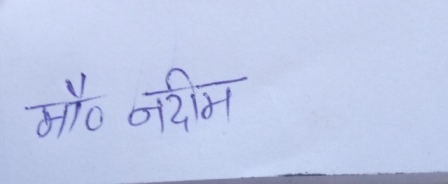 मौ० नदीम